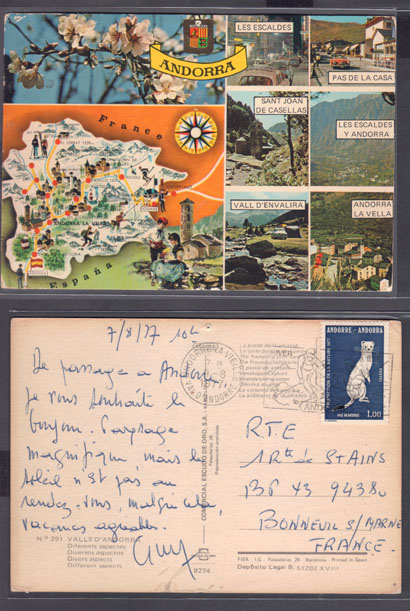 ANDORRA
LES ESCALDES
PAS DE LA CASA
SANT JOAN
DE CASELLAS
LES ESCALDES
Y ANDORRA
VALL D'ENVALIRA
ANDORRA
LA VELLA
France
ANDORRA LA VELLA
España
7/8/77 10h
De passage a Andorre
je vous souhaite le
bonjour. Paysage
magnifique mais le
soleil n'est pas au
rendez-vous, malgré cela,
vacances agréables.
Guy
N.º 291 VALLS D'ANDORRA
Diferents aspectes
Diversos aspectos
Divers aspects
Different aspects
COMERCIAL ESCUDO DE ORO, S.A.
8274
ANDORRE-LA-VIEILLE
VAL D'ANDORRE
ANDORRE - ANDORRA
PROTECTION DE LA NATURE
HERMINE
1,00
POSTES
RTE
1 Rte de STAINS
BP 43 94380
BONNEUIL S/MARNE
FRANCE.
FISA I.G. Palaudarias, 26 Barcelona Printed in Spain
Depósito Legal B. 51202 XVIII